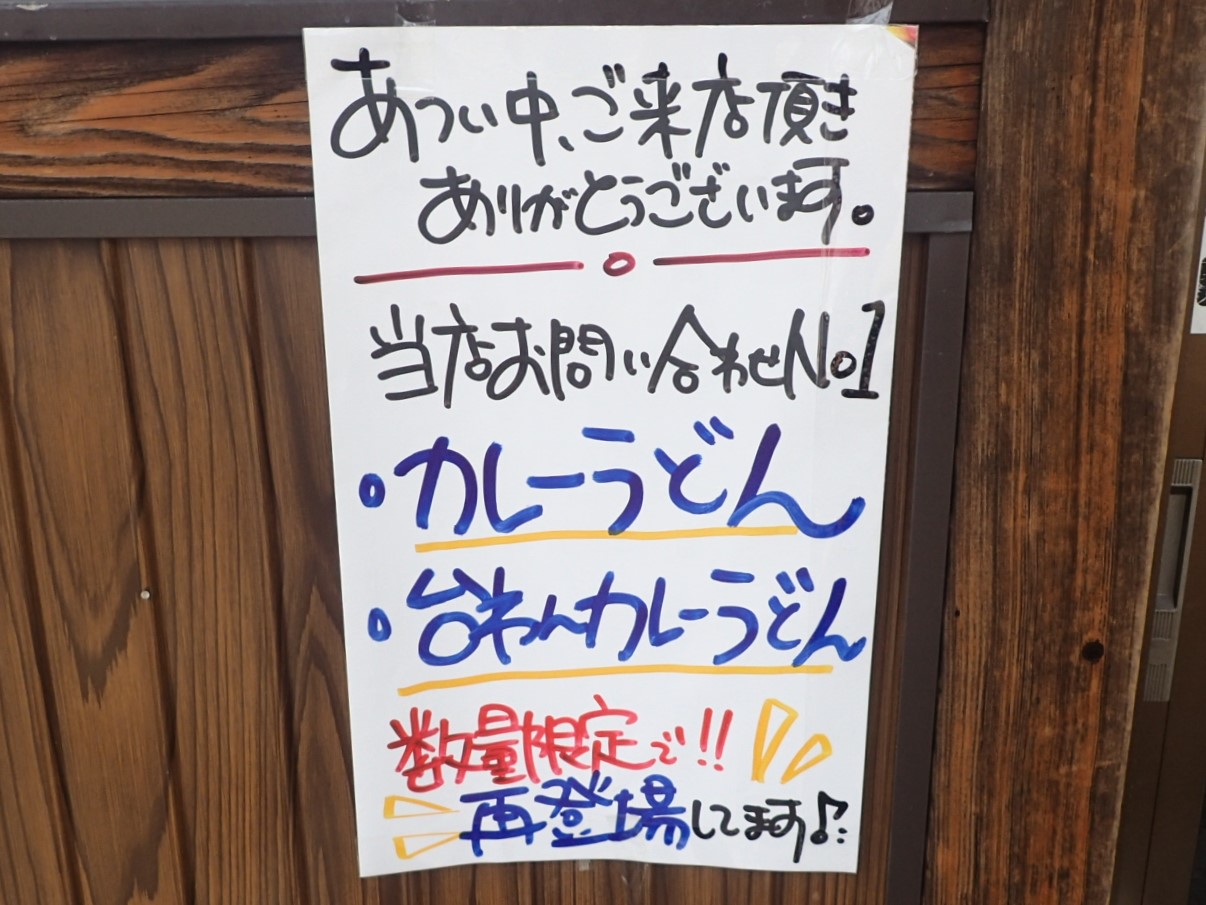 あつい中、ご来店頂き
ありがとうございます。
当店お問い合わせNo1
・カレーうどん
・台わんカレーうどん
数量限定で!!
再登場してます♪